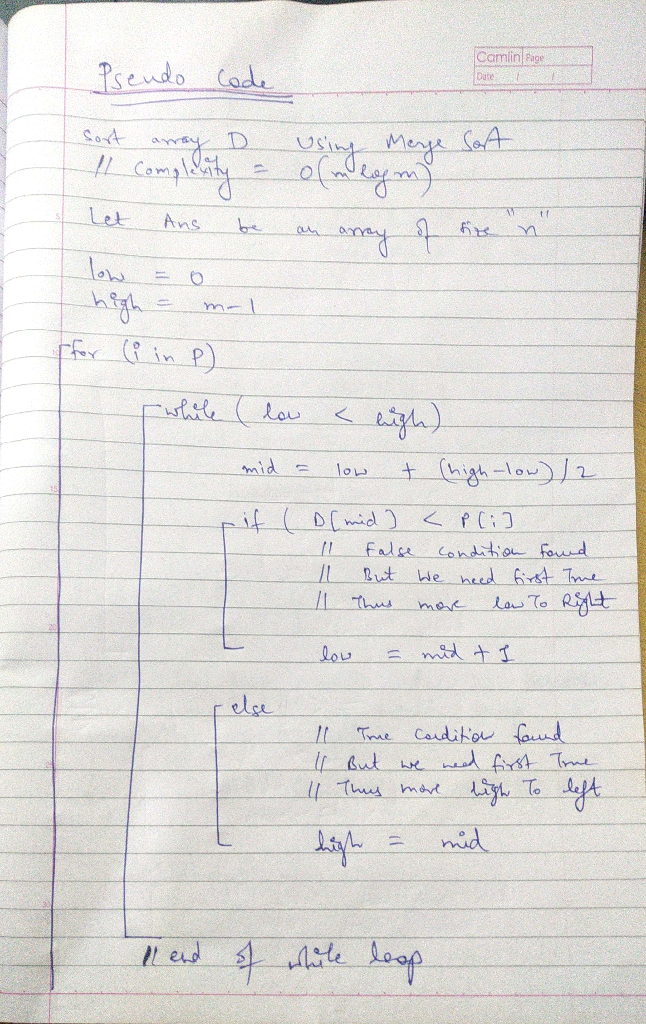 Camlin Page
Date / /
Pseudo Code
Sort array D Using Merge Sort
// Complexity = O(m log m)
Let Ans be an array of size "n"
low = 0
high = m-1
for (i in P)
while ( low < high )
mid = low + (high-low)/2
if ( D[mid] < P[i]
// False condition found
// But we need first True
// Thus move low To Right
low = mid + 1
else
// True Condition found
// But we need first True
// Thus move high To left
high = mid
// end of while loop